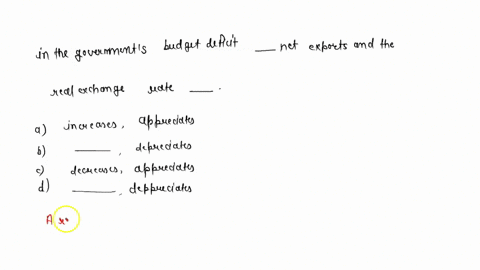 in the government's budget deficit ___ net exports and the
real exchange rate ___.
a) increases, appreciates
b) ___, depreciates
c) decreases, appreciates
d) ___, deppreciates
A